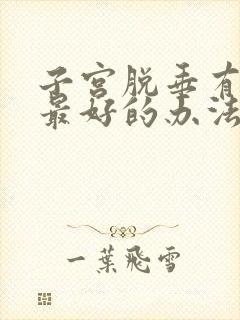 子宫脱垂有
最好的办法
一葉飛雪